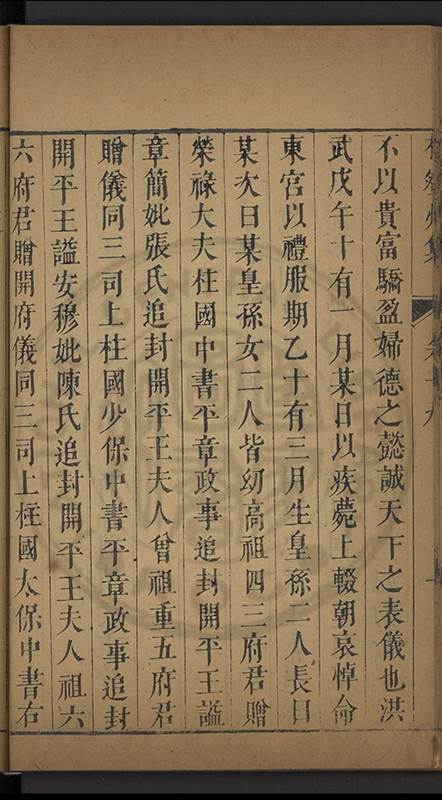 集
卷十九
不以貴富驕盈婦德之懿誠天下之表儀也洪
武戊午十有一月某日以疾薨上輟朝哀悼命
東宮以禮服期乙十有三月生皇孫二人長曰
某次曰某皇孫女二人皆幼高祖四三府君贈
榮祿大夫柱國中書平章政事追封開平王謚
章簡妣張氏追封開平王夫人曾祖重五府君
贈儀同三司上柱國少保中書平章政事追封
開平王謚安穆妣陳氏追封開平王夫人祖六
六府君贈開府儀同三司上柱國太保中書右